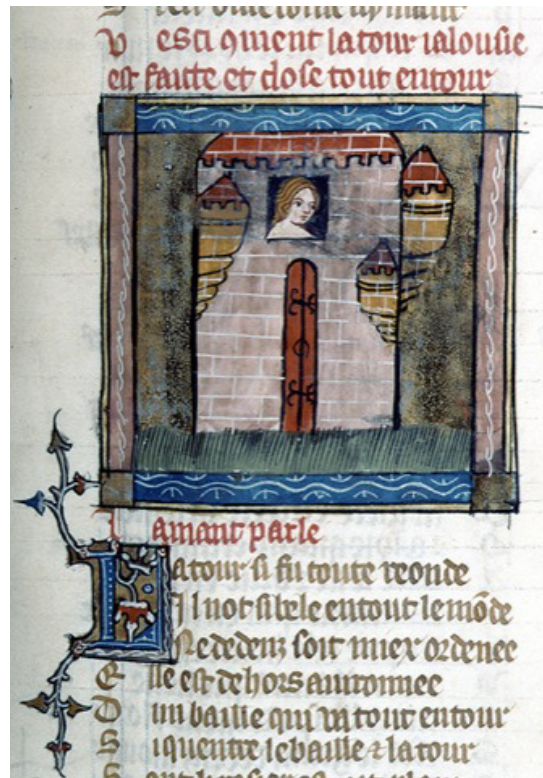 Vesci quient la tour ialousie
est faite et close tout entour
Lamant parle
La tour si fu toute reonde
Il not si bele en tout le mōde
Ne dedenz soit miex ordenee
Elle est dehors auironnee
Dun baille qui va tout entour
Si quentre le baille ⁊ la tour